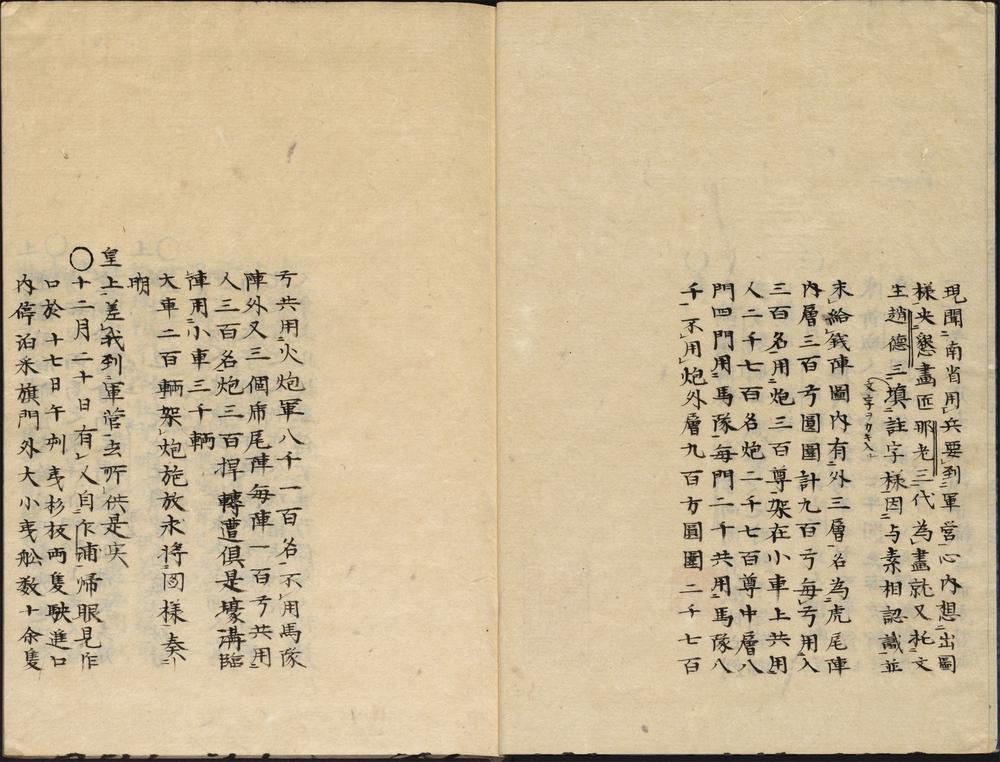 現聞南省用兵要到軍営心内想出圖
様央懇畫匠那老三代為畫就又托文
生趙德三填註字様因与素相認識並
文字ヲカキ入
未給銭陣圖内有外三層名為虎尾陣
内層三百丂圓圍計九百丂毎丂用人
三百名用炮三百尊架在小車上共用
人二千七百名炮二千七百尊中層八
門四門用馬隊毎門二千共用馬隊八
千不用炮外層九百方圓圍二千七百
丂共用火炮軍八千一百名不用馬隊
陣外又三個席尾陣毎陣一百丂共用
人三百名炮三百捍轉遭俱是壕溝臨
陣用小車三千輌
大車二百輌架炮施放求将圖様奏
明
皇上差我到軍営去所供是実
〇十二月二十日有人自乍浦帰眼見作
口於十七日午刻夷杉板両隻駛進口
内停泊采旗門外大小夷舩数十余隻